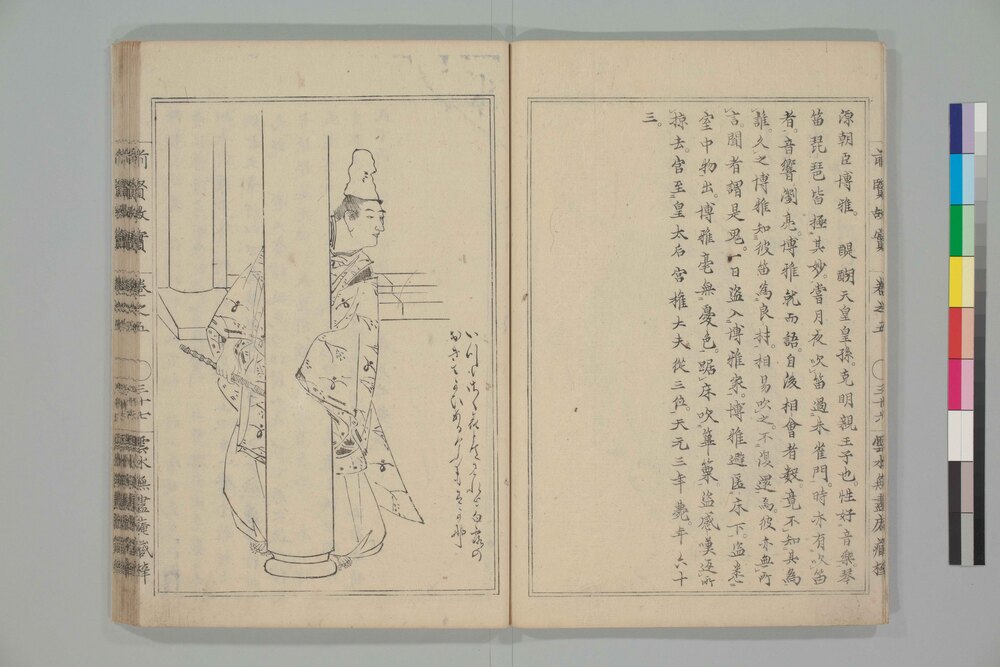 源朝臣博雅。醍醐天皇皇孫。克明親王子也。性好音樂。琴
笛琵琶皆極其妙。嘗月夜吹笛過朱雀門。時亦有吹笛
者。音響瀏亮。博雅就而語。自後相會者數。竟不知其爲
誰。久之博雅知彼笛爲良材。相易吹之。不復還。爲彼亦無所
言。聞者謂是鬼。一日盜入博雅家。博雅避匿床下。盜悉
室中物出。博雅毫無憂色。踞床吹篳篥。盜感嘆返所
掠去。官至皇太后宮權大夫。從三位。天元三年薨。年六十
三。
前賢故實 卷之五 三十六 雲水無盡庵藏梓
前賢故實 卷之五 三十七 雲水無盡庵藏梓
白露の